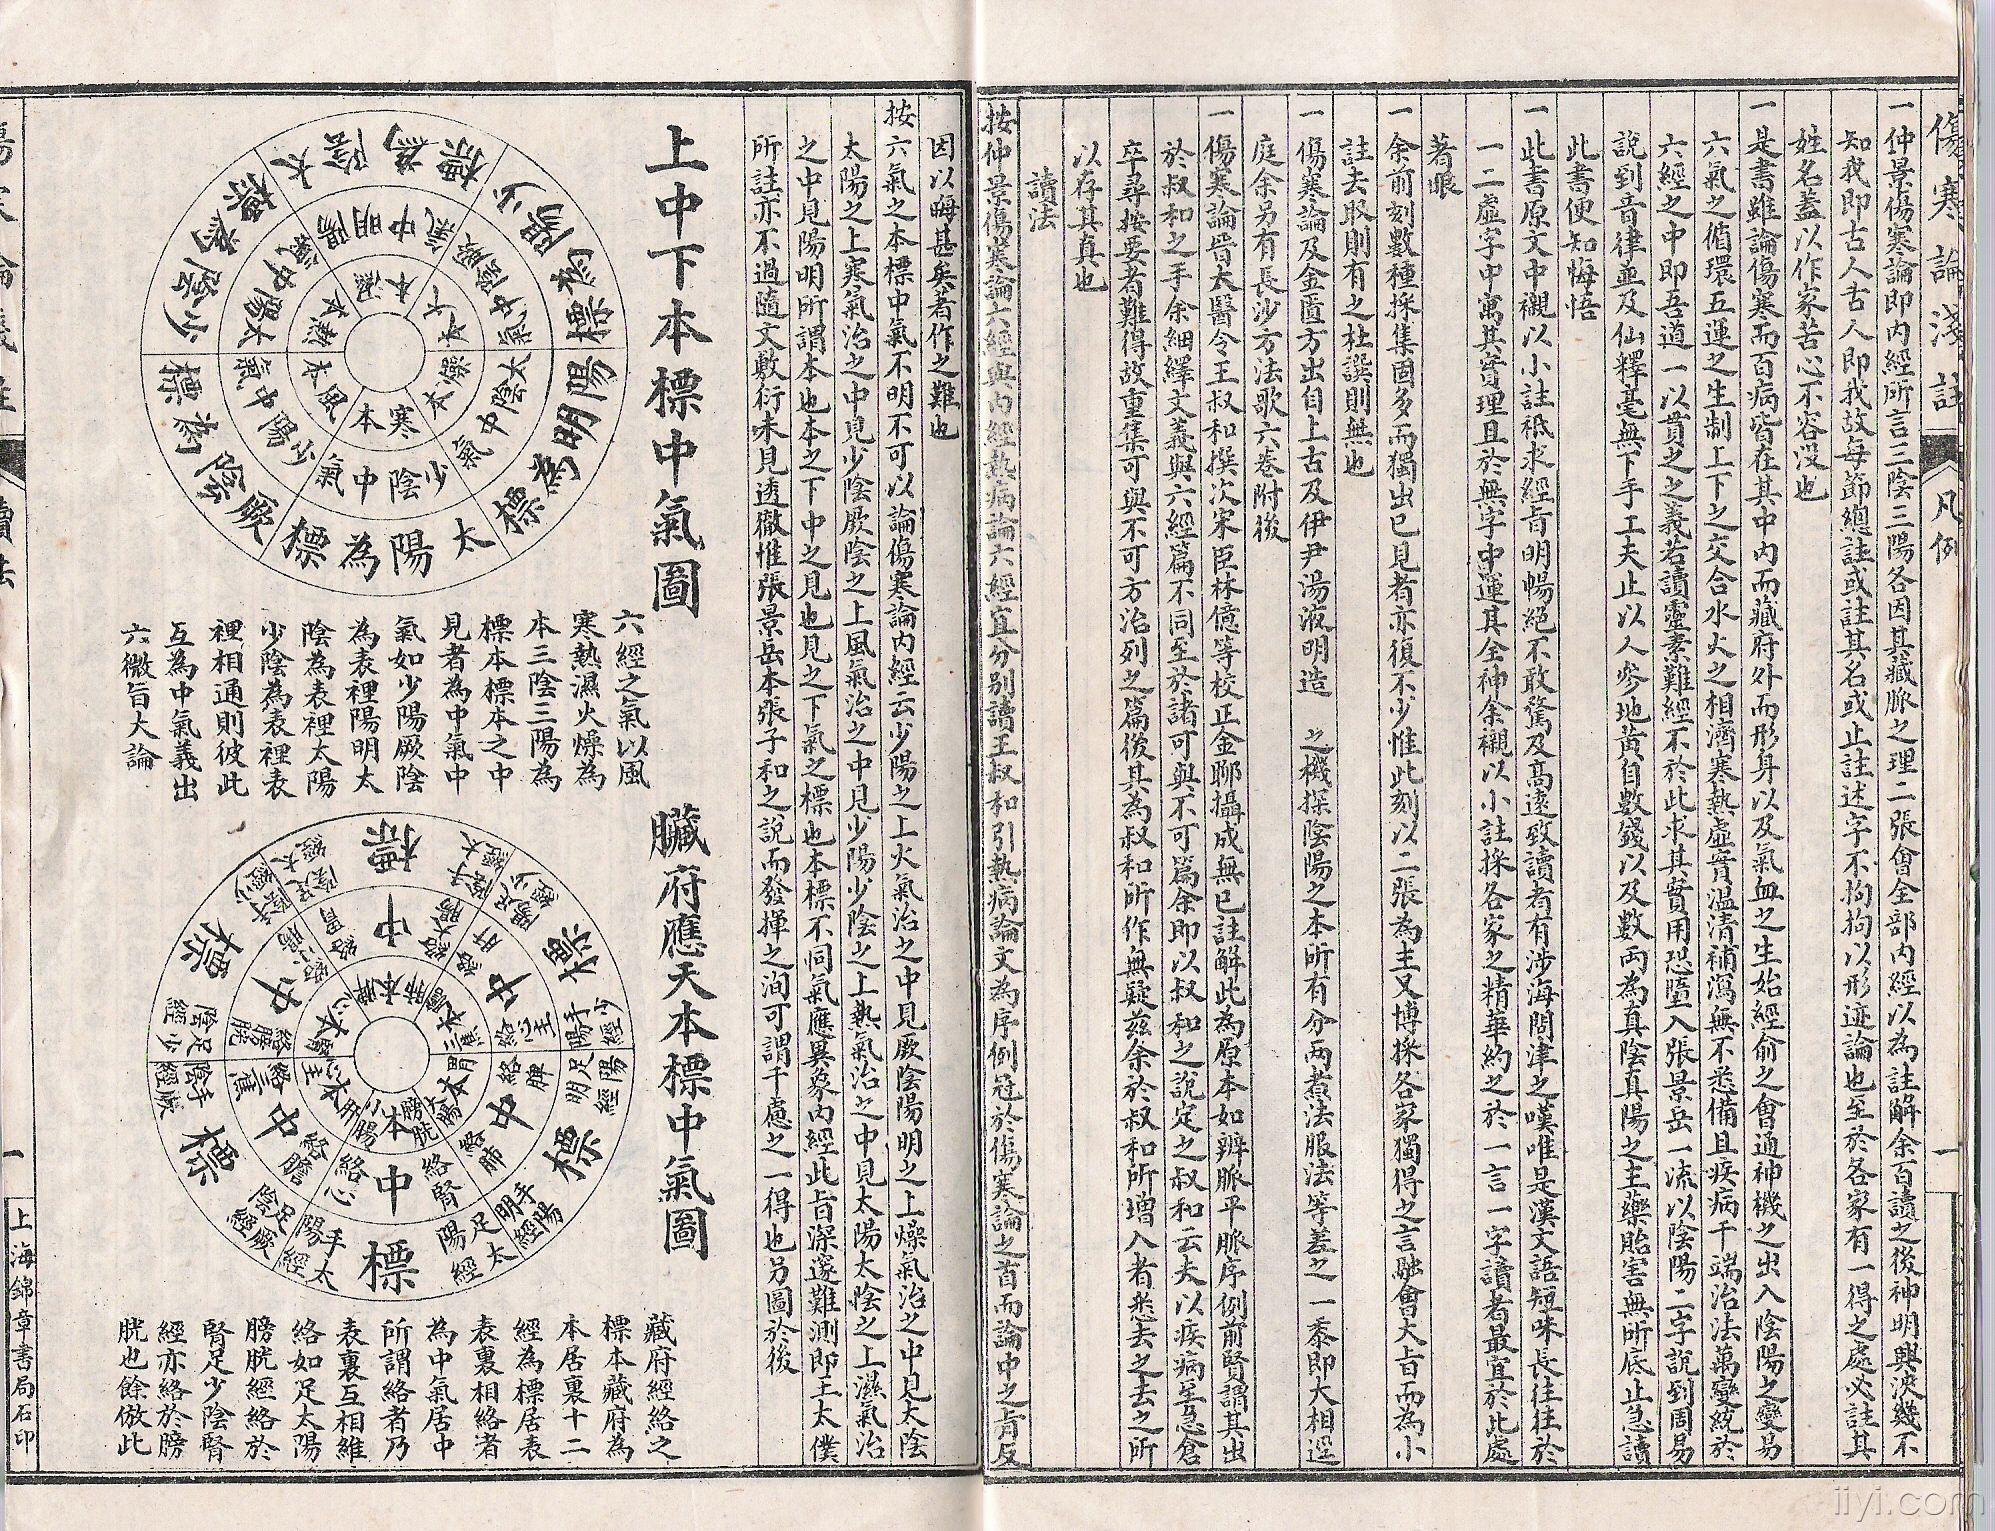 傷寒論淺註
凡例
一
一仲景傷寒論即內經所言三陰三陽各因其藏脈之理二張會全部內經以為註解余百讀之後神明與浹幾不
知我即古人古人即我故每節總註或註其名或止註述字不拘拘以形迹論也至於各家有一得之處必註其
姓名蓋以作家苦心不容沒也
一是書雖論傷寒而百病皆在其中內而藏府外而形身以及氣血之生始經俞之會通神機之出入陰陽之變易
六氣之循環五運之生制上下之交合水火之相濟寒熱虛實溫清補瀉無不悉備且疾病千端治法萬變統於
六經之中即吾道一以貫之之義若讀靈素難經不於此求其實用恐墮入張景岳一流以陰陽二字說到周易
說到音律並及仙釋毫無下手工夫止以人參地黃自數錢以及數兩為真陰真陽之主藥貽害無所底止急讀
此書便知悔悟
一此書原文中襯以小註祗求經旨明暢絕不敢驁及高遠致讀者有涉海問津之嘆唯是漢文語短味長往往於
一二虛字中寓其實理且於無字中運其全神余襯以小註採各家之精華約之於一言一字讀者最宜於此處
著眼
一余前刻數種採集固多而獨出己見者亦復不少惟此刻以二張為主又博採各家獨得之言融會大旨而為小
註去取則有之杜譔則無也
一傷寒論及金匱方出自上古及伊尹湯液明造 之機探陰陽之本所有分兩煮法服法等差之一黍即大相逕
庭余另有長沙方法歌六卷附後
一傷寒論晉太醫令王叔和撰次宋臣林億等校正金聊攝成無已註解此為原本如辨脈平脈序例前賢謂其出
於叔和之手余細繹文義與六經篇不同至於諸可與不可篇余即以叔和之說定之叔和云夫以疾病至急倉
卒尋按要者難得故重集可與不可方治列之篇後其為叔和所作無疑茲余於叔和所增入者悉去之去之所
以存其真也
讀法
按仲景傷寒論六經與內經熱病論六經宜分別讀王叔和引熱病論文為序例冠於傷寒論之首而論中之旨反
因以晦甚矣著作之難也
按六氣之本標中氣不明不可以論傷寒論內經云少陽之上火氣治之中見厥陰陽明之上燥氣治之中見太陰
太陽之上寒氣治之中見少陰厥陰之上風氣治之中見少陽少陰之上熱氣治之中見太陽太陰之上濕氣治
之中見陽明所謂本也本之下中之見也見之下氣之標也本標不同氣應異象內經此旨深邃難測即王太僕
所註亦不過隨文敷衍未見透徹惟張景岳本張子和之說而發揮之洵可謂千慮之一得也另圖於後
上中下本標中氣圖
太陽為標
陽明為標
少陽為標
太陰為標
少陰為標
厥陰為標
少陰中氣
太陰中氣
厥陰中氣
陽明中氣
太陽中氣
少陽中氣
本寒
本燥
本火
本濕
本熱
本風
六經之氣以風
寒熱濕火燥為
本三陰三陽為
標本標本之中
見者為中氣中
氣如少陽厥陰
為表裡陽明太
陰為表裡太陽
少陰為表裡表
裡相通則彼此
互為中氣義出
六微旨大論
臟府應天本標中氣圖
標
標
標
標
標
標
中
中
中
中
中
中
足太陽經
手太陽經
手陽明經
足陽明經
手少陽經
足少陽經
手太陰經
足太陰經
手少陰經
足少陰經
手厥陰經
足厥陰經
絡腎
絡心
絡肺
絡脾
絡心主
絡肝
絡大腸
絡胃
絡小腸
絡膀胱
絡三焦
絡膽
本
膀胱
小腸
藏府經絡之
標本藏府為
本居裏十二
經為標居表
表裏相絡者
為中氣居中
所謂絡者乃
表裏互相維
絡如足太陽
膀胱經絡於
腎足少陰腎
經亦絡於膀
胱也餘倣此
讀法
一
上海錦章書局石印
iiyi.com